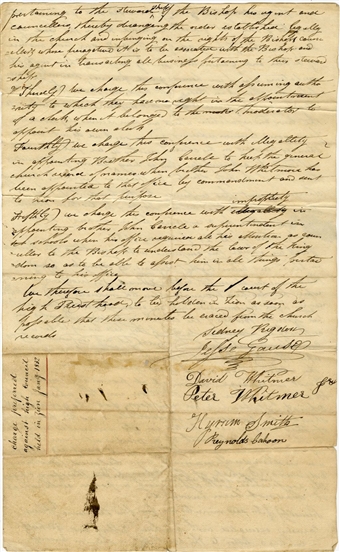 pertaining to the stewardship of the Bishop his agent and
councellors, thereby deranging the order established legally
in the church and infringing on the rights of the Bishops coun
cellors whose prerogative it is to be associated with the Bishop and
his agent in transacting all business pertaining to this steward
ship
Thirdly) we charge this conference with assuming autho
rity to which they have no right in the appointment
of a clerk, when it belonged to the moderator to
appoint his own clerk
Fourthly) we charge this conference with illegality
in appointing Brother John Carrole to keep the general
church record of names when brother John Whitmer has
been appointed to that office by commandment and sent
to zion for that purpose
Fifthly) we charge this conference with impropriety in
appointing brother John Carrole a superintendent in
schools when his office requires all his attention as coun
cellor to the Bishop to understand the laws of the King
dom so as to be able to assist him in all things pertai
ning to his office
We therefore shall move before the court of the
high Priesthood to be holden in Zion as soon as
possible that these minutes be erased from the church
records
Sidney Rigdon
Jesse Gause
David Whitmer
Peter Whitmer
Hyrum Smith
Reynolds Cahoon
charge prefered
against high council
held in Zion Jany 1832